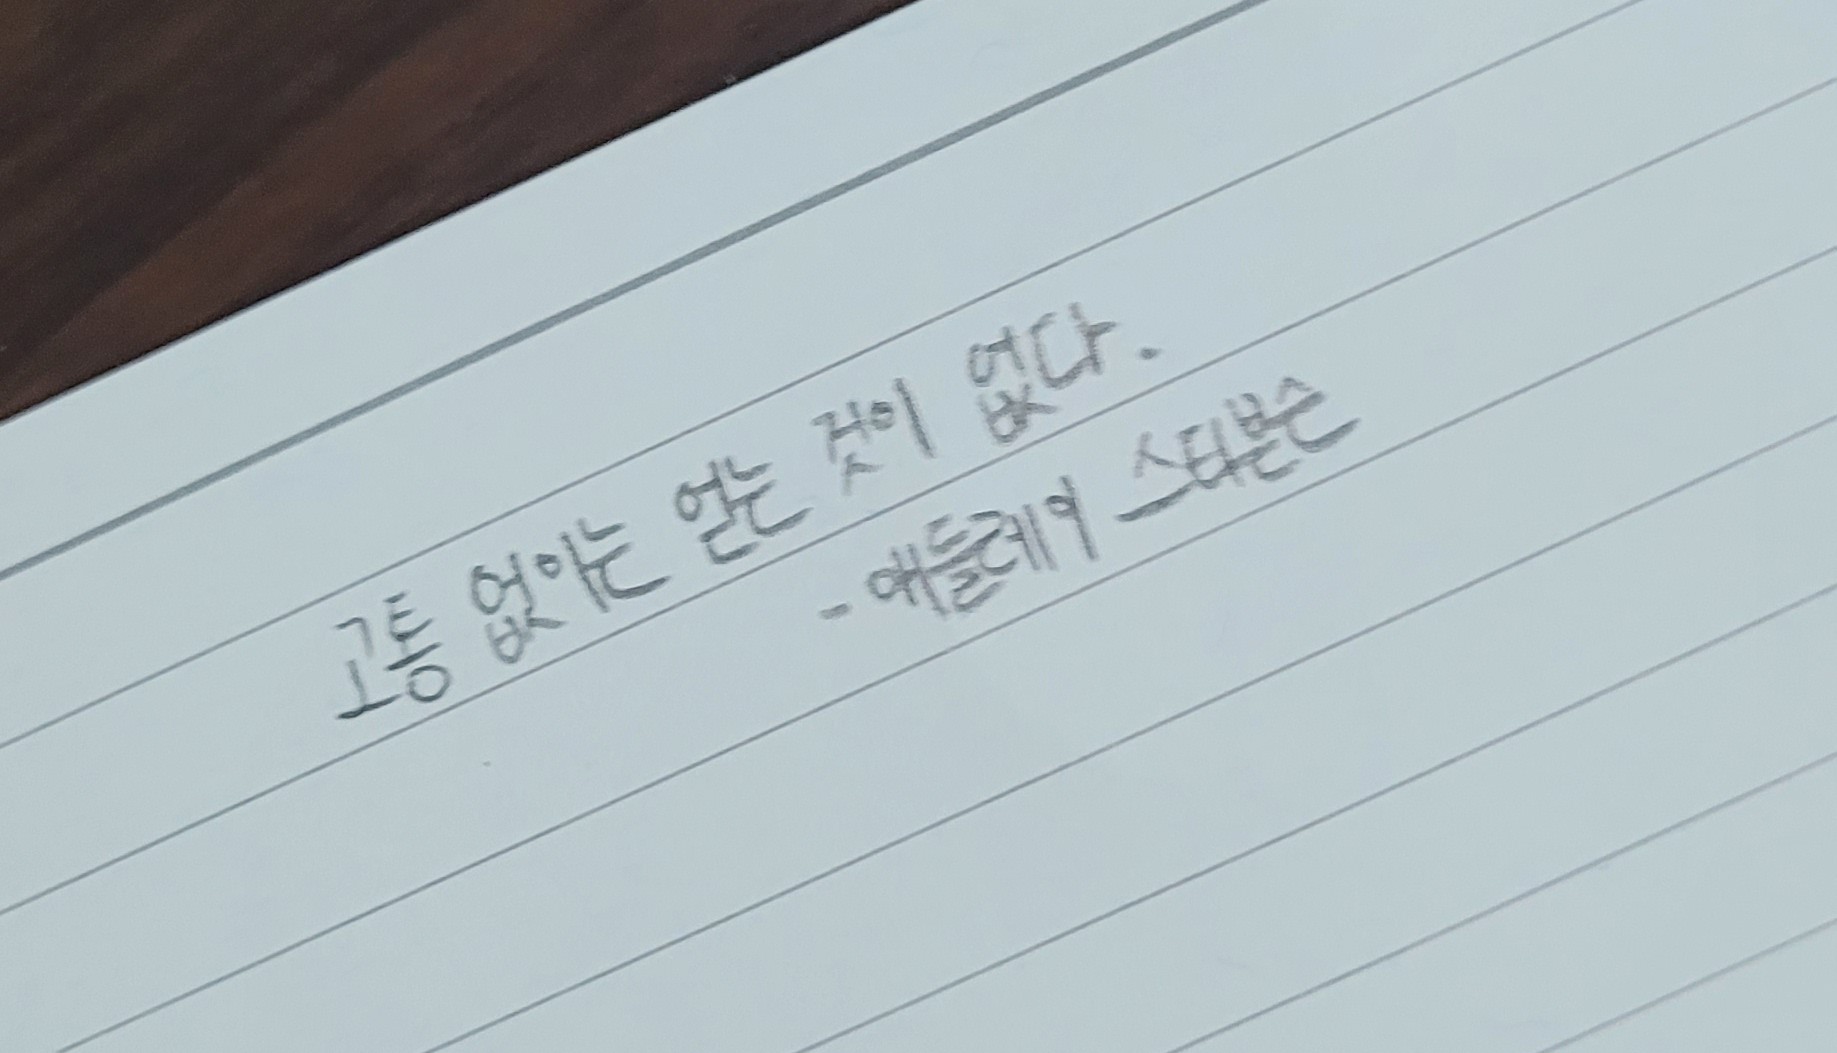 고통 없이는 얻는 것이 없다.
- 애들레이 스티븐슨